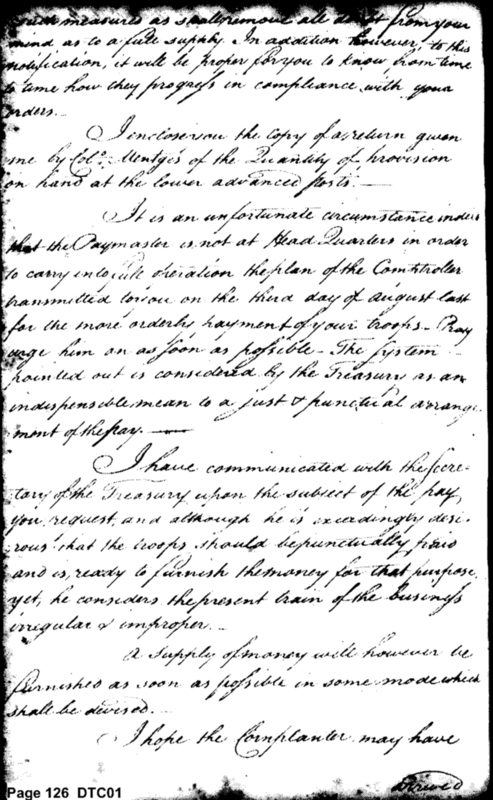 such measures as shall remove all doubt from your
mind as to a full supply. In addition however, to this
notification, it will be proper for you to know, from time
to time how they progress in compliance with your
orders.
I inclose you the Copy of a return given
me by Colo. Mentges of the Quantity of provision
on hand at the lower advanced posts.
It is an unfortunate circumstance indeed
that the Paymaster is not at Head Quarters in order
to carry into full operation the plan of the Comptroller
transmitted to you on the third day of august last
for the more orderly payment of your troops - Pray
urge him on as soon as possible - The System
pointed out is considered by the Treasury as an
indispensible mean to a just & punctual arrange
ment of the pay.
I have communicated with the Secre-
tary of the Treasury upon the subject of the pay
you request, and although he is exceedingly desi-
rous that the troops should be punctually paid
and is ready to furnish the money for that purpose,
yet, he considers the present train of the business
irregular & improper.
A supply of money will however be
furnished as soon as possible in some mode which
shall be devised.
I hope the Cornplanter may have
arrived
Page 126 DTC01